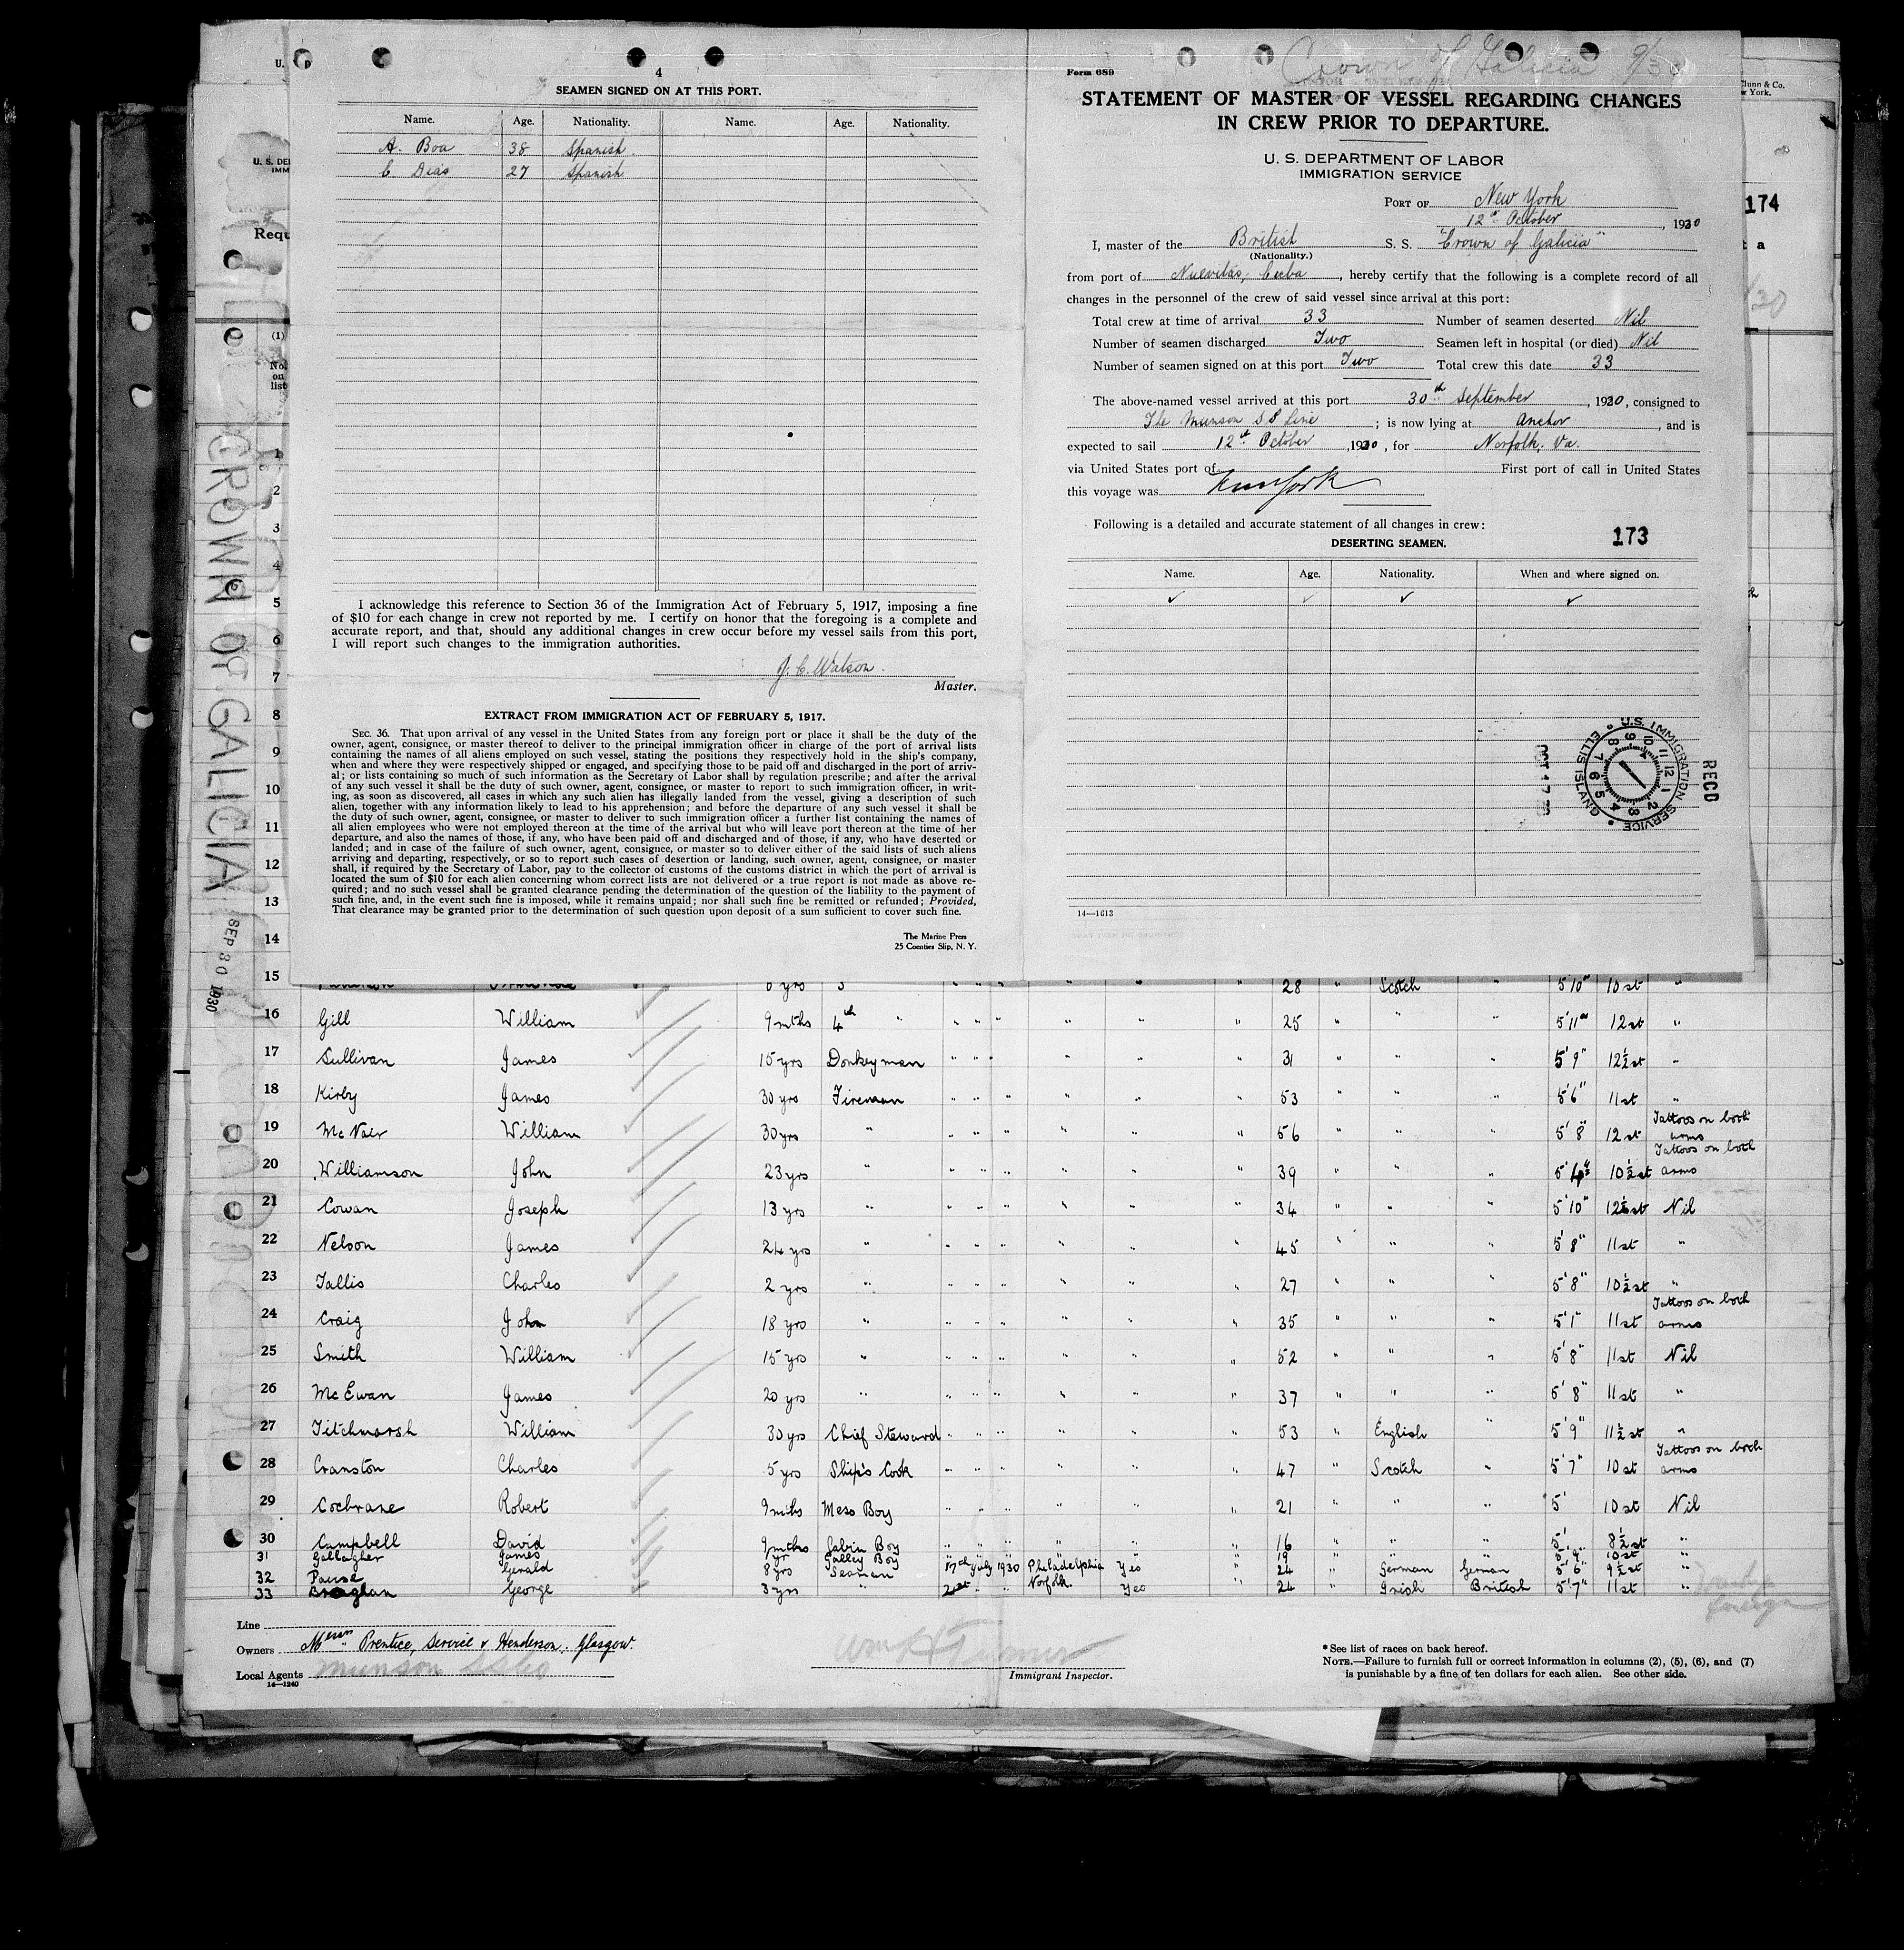 4
SEAMEN SIGNED ON AT THIS PORT.
Name. Age. Nationality. Name. Age. Nationality.
A. Boa 38 Spanish
C. Dias 27 Spanish
I acknowledge this reference to Section 36 of the Immigration Act of February 5, 1917, imposing a fine
of $10 for each change in crew not reported by me. I certify on honor that the foregoing is a complete and
accurate report, and that, should any additional changes in crew occur before my vessel sails from this port,
I will report such changes to the immigration authorities.
J. C. Watson.
Master.
EXTRACT FROM IMMIGRATION ACT OF FEBRUARY 5, 1917.
SEC. 36. That upon arrival of any vessel in the United States from any foreign port or place it shall be the duty of the
owner, agent, consignee, or master thereof to deliver to the principal immigration officer in charge of the port of arrival lists
containing the names of all aliens employed on such vessel, stating the positions they respectively hold in the ship's company,
when and where they were respectively shipped or engaged, and specifying those to be paid off and discharged in the port of arriv-
al; or lists containing so much of such information as the Secretary of Labor shall by regulation prescribe; and after the arrival
of any such vessel it shall be the duty of such owner, agent, consignee, or master to report to such immigration officer, in writ-
ing, as soon as discovered, all cases in which any such alien has illegally landed from the vessel, giving a description of such
alien, together with any information likely to lead to his apprehension; and before the departure of any such vessel it shall be
the duty of such owner, agent, consignee, or master to deliver to such immigration officer a further list containing the names of
all alien employees who were not employed thereon at the time of the arrival but who will leave port thereon at the time of her
departure, and also the names of those, if any, who have been paid off and discharged and of those, if any, who have deserted or
landed; and in case of the failure of such owner, agent, consignee, or master so to deliver either of the said lists of such aliens
arriving and departing, respectively, or so to report such cases of desertion or landing, such owner, agent, consignee, or master
shall, if required by the Secretary of Labor, pay to the collector of customs of the customs district in which the port of arrival is
located the sum of $10 for each alien concerning whom correct lists are not delivered or a true report is not made as above re-
quired; and no such vessel shall be granted clearance pending the determination of the question of the liability to the payment of
such fine, and, in the event such fine is imposed, while it remains unpaid; nor shall such fine be remitted or refunded; Provided,
That clearance may be granted prior to the determination of such question upon deposit of a sum sufficient to cover such fine.
The Marine Press
25 Coenties Slip, N. Y.
Crown of Galicia 9/30
Form 689
STATEMENT OF MASTER OF VESSEL REGARDING CHANGES
IN CREW PRIOR TO DEPARTURE.
U. S. DEPARTMENT OF LABOR
IMMIGRATION SERVICE
PORT OF New York
12th October, 1930
I, master of the British S. S. "Crown of Galicia"
(Nationality.)
from port of Nuevitas, Cuba, hereby certify that the following is a complete record of all
changes in the personnel of the crew of said vessel since arrival at this port:
Total crew at time of arrival 33 Number of seamen deserted Nil
Number of seamen discharged Two Seamen left in hospital (or died) Nil
Number of seamen signed on at this port Two Total crew this date 33
The above-named vessel arrived at this port 30th September, 1930, consigned to
The Munson S S Line; is now lying at Anchor, and is
expected to sail 12th October, 1930, for Norfolk, Va.
via United States port of First port of call in United States
this voyage was New York
Following is a detailed and accurate statement of all changes in crew:
173
DESERTING SEAMEN.
Name. Age. Nationality. When and where signed on.
RECD
U.S. IMMIGRATION SERVICE
ELLIS ISLAND
14—1613
174
CROWN OF GALICIA
SEP 30 1930
1
2
3
4
5
6
7
8
9
10
11
12
13
14
15 6 yrs 3 " " " " " " 28 " Scotch " 5'10" 10 st "
16 Gill William 9 mths 4th " " " " " " " 25 " " " 5'11" 12 st "
17 Sullivan James 15 yrs Donkeyman " " " " " " 31 " " " 5'9" 12½ st "
18 Kirby James 30 yrs Fireman " " " " " " 53 " " " 5'6" 11 st "
19 McNair William 30 yrs " " " " " " " 56 " " " 5'8" 12 st Tattoos on both arms
20 Williamson John 23 yrs " " " " " " " 39 " " " 5'4" 10½ st Tattoos on both arms
21 Cowan Joseph 13 yrs " " " " " " " 34 " " " 5'10" 12½ st Nil
22 Nelson James 24 yrs " " " " " " " 45 " " " 5'8" 11 st "
23 Tallis Charles 2 yrs " " " " " " " 27 " " " 5'8" 10½ st "
24 Craig John 18 yrs " " " " " " " 35 " " " 5'1" 11 st Tattoos on both arms
25 Smith William 15 yrs " " " " " " " 52 " " " 5'8" 11 st Nil
26 McEwan James 20 yrs " " " " " " " 37 " " " 5'8" 11 st "
27 Titchmarsh William 30 yrs Chief Steward " " " " " " 53 " English " 5'9" 11½ st "
28 Cranston Charles 5 yrs Ship's Cook " " " " " " 47 " Scotch " 5'7" 10 st Tattoos on both arms
29 Cochrane Robert 9 mths Mess Boy " " " " " " 21 " " " 5' 10 st Nil
30 Campbell David 9 mths Cabin Boy " " " " " " 16 " " " 5' 8½ st "
31 Gallagher James yr Galley Boy " " " " " " 19 " " " 10 st "
32 Pause Gerald 8 yrs Seaman 17th July 1930 Philadelphia Yes " 24 " German German 5'6" 9½ st "
33 George 3 yrs " 21st " " Norfolk Yes " 24 " Irish British 5'7" 11 st "
Line
Owners Messrs Prentice, Service & Henderson, Glasgow.
Local Agents Munson SS Co
14—1240
Immigrant Inspector.
* See list of races on back hereof.
NOTE.—Failure to furnish full or correct information in columns (2), (5), (6), and (7)
is punishable by a fine of ten dollars for each alien. See other side.